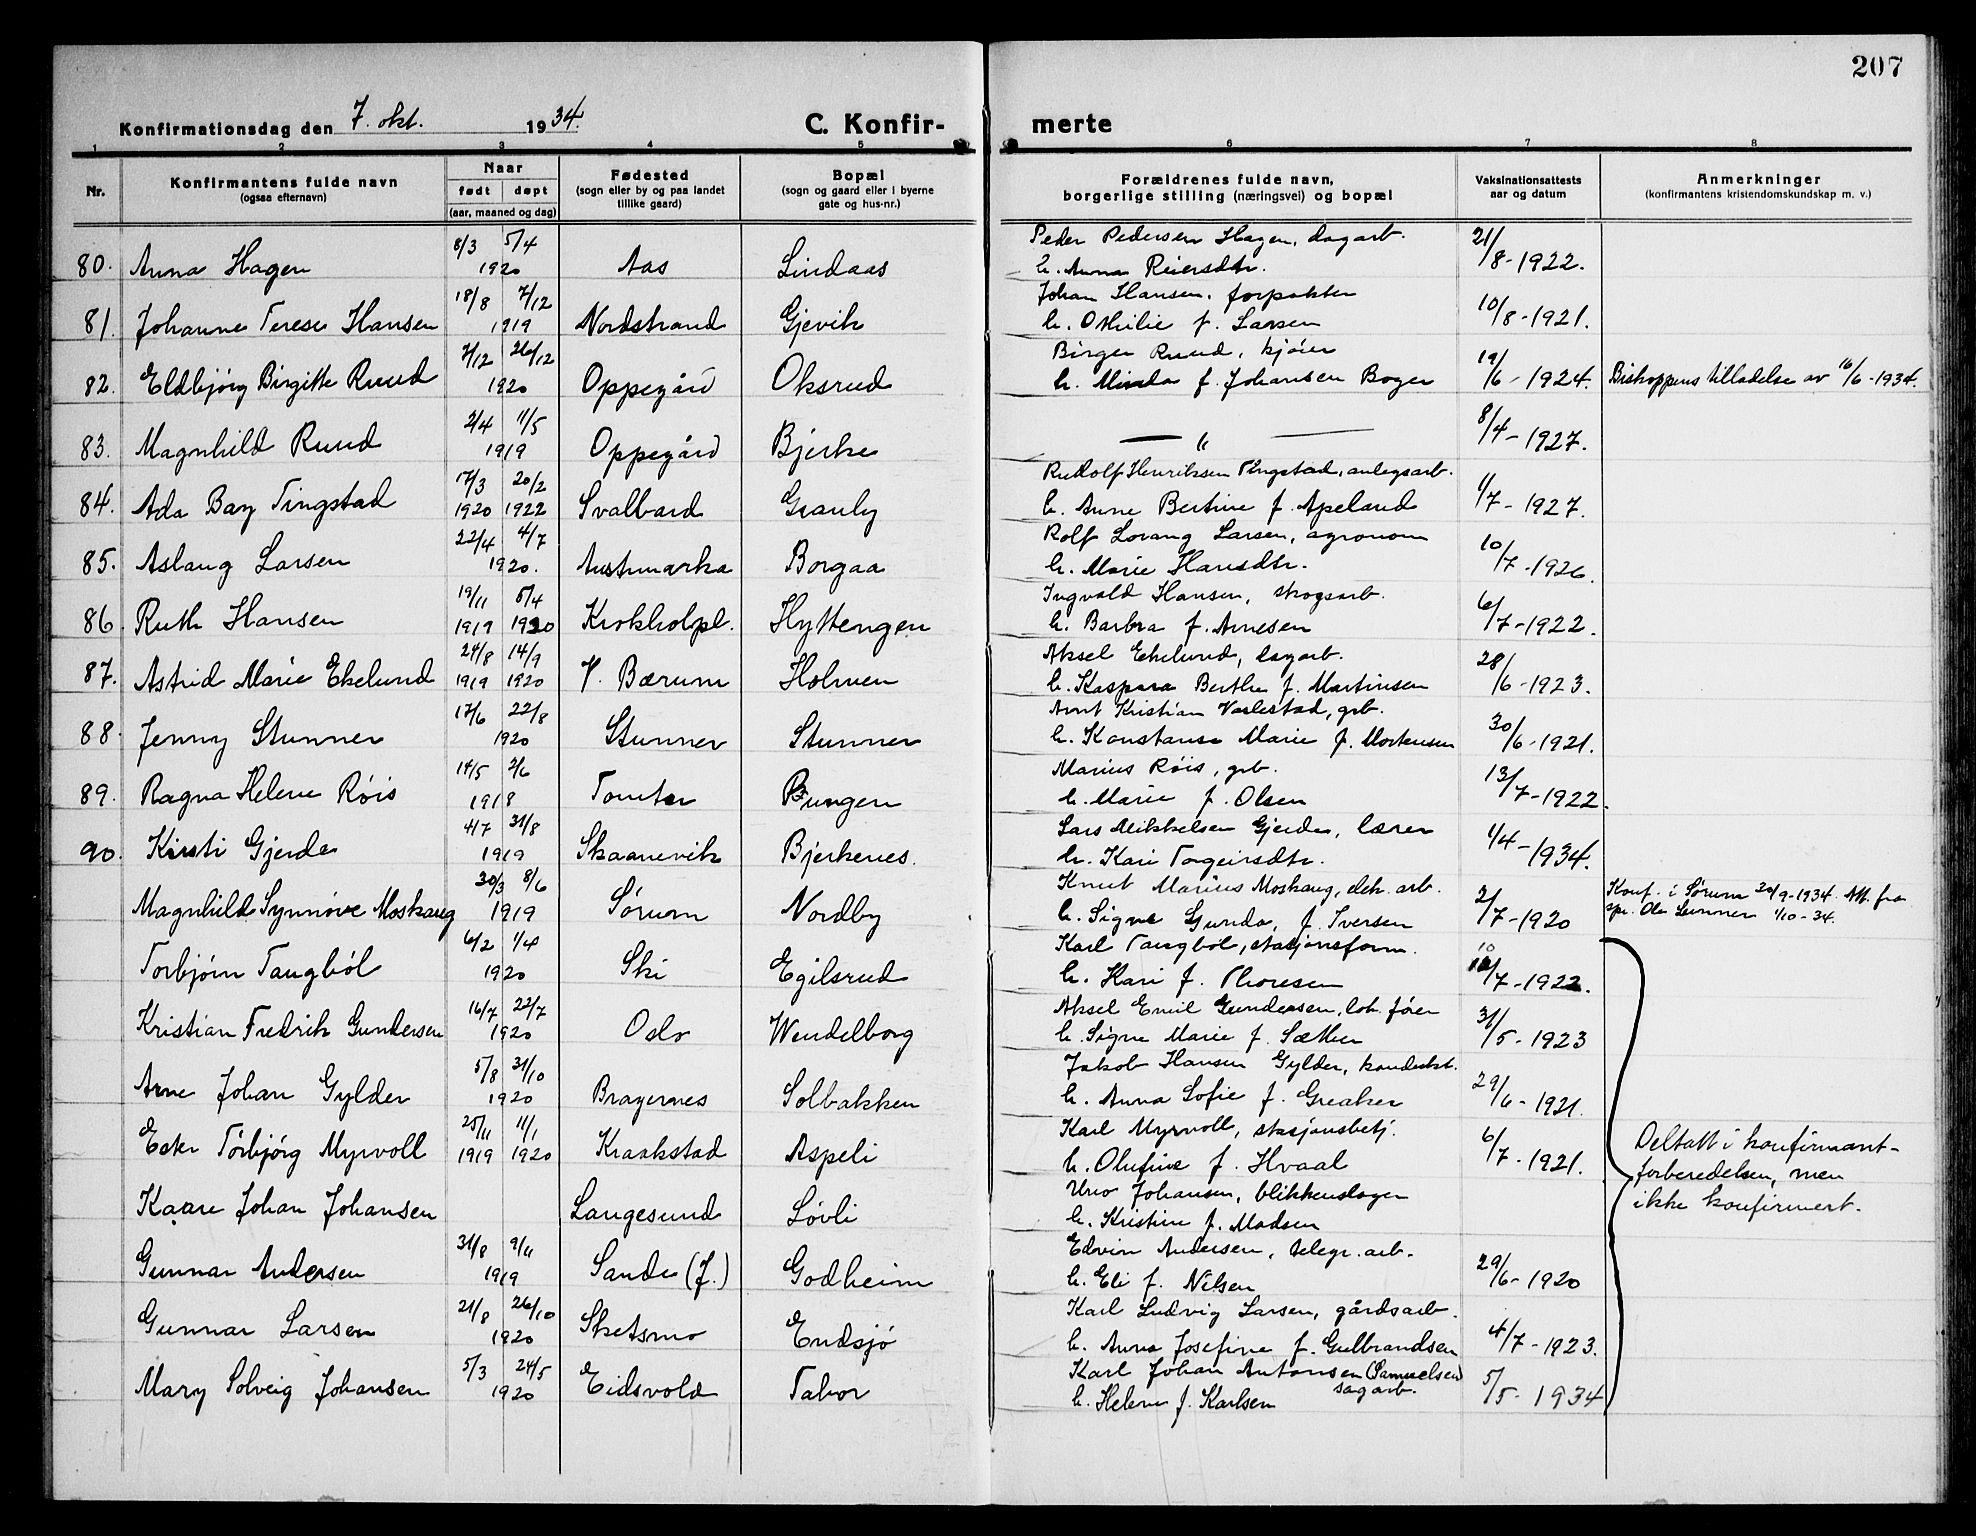 207
Konfirmationsdag den 7. okt. 1934. C. Konfir- merte
1 2 3 4 5 6 7 8
Nr. Konfirmantens fulde navn (ogsaa efternavn) Naar født døpt (aar, maaned og dag) Fødested (sogn eller by og paa landet tillike gaard) Bopæl (sogn og gaard eller i byerne gate og hus-nr.) Forældrenes fulde navn, borgerlige stilling (næringsvei) og bopæl Vaksinationsattests aar og datum Anmerkninger (konfirmantens kristendomskundskap m. v.)
8/3 5/4 Peder Pedersen Hagen, dagarb. 21/
80. Anna Hagen 1920 Aas Lindaas h. Anna Reiersdtr. 8-1922.
18/8 7/12 Johan Hansen, forpakter
81. Johanne Terese Hansen 1919 Nordstrand Gjevik h. Othilie f. Larsen 10/8-1921.
7/12 26/12 Birger Ruud, kjøier
82. Eldbjörg Birgitte Ruud 1920 Oppegård Oksrud h. Minda f. Johansen Boger 19/6-1924. Biskoppens tilladelse av 16/6-1934.
2/4 11/5
83. Magnhild Ruud 1919 Oppegård Bjerke — " — 8/4-1927.
17/3 20/2 Rudolf Henriksen Tingstad, anlegsarb.
84. Ada Bay Tingstad 1920 1922 Svalbard Granly h. Anne Bertine f. Apeland 1/7-1927.
22/4 4/7 Rolf Lorang Larsen, agronom
85. Aslaug Larsen 1920. Austmarka Borgaa h. Marie Hansdtr. 10/7-1926.
19/11 5/4 Ingvald Hansen, skogsarb.
86. Ruth Hansen 1919 1920 Krokholpl. Hyttengen h. Barbra f. Arnesen 6/7-1922.
24/8 14/9 Aksel Ekelund, dagarb.
87. Astrid Marie Ekelund 1919 1920 V. Bærum Holmen h. Kaspara Berthe f. Martinsen 28/6-1923.
17/6 22/8 Arnt Kristian Varlestad, grb.
88. Jenny Stunner 1920 Stunner Stunner h. Konstanse Marie f. Mortensen 30/6-1921.
14/5 2/6 Marius Röis, grb.
89. Ragna Helene Röis 1918 Tomter Bungen h. Marie f. Olsen 13/7-1922.
4/7 31/8 Lars Mikkelsen Gjerde, lærer
90. Kirsti Gjerde 1919 Skaanevik Bjerkenes. h. Kari Torgeirsdtr. 1/4-1934.
30/3 8/6 Knut Marius Moskaug, elek. arb. Konf. i Sørum 20/9-1934. Att. fra
Magnhild Synnöve Moskaug 1919 Sørum Nordby h. Signe Gunda, f. Iversen 2/7-1920 spr. Ole Sunner 1/10-34.
6/2 1/4 Karl Taugböl, stasjonsform.
Torbjörn Taugböl 1920 Ski Egilsrud h. Kari f. Thoresen 10/7-1922.
16/7 22/7 Aksel Emil Gundersen, lok. förer
Kristian Fredrik Gundersen 1920 Oslo Wendelborg h. Signe Marie f. Sæther 31/5-1923
5/8 31/10 Jakob Hansen Gylder, kondukt.
Arne Johan Gylder 1920 Bragernes Solbakken h. Anna Sofie f. Greaker 29/6-1921.
25/11 11/1 Karl Myrvoll, stasjonsbetj.
Ester Torbjörg Myrvoll 1919 1920 Kraakstad Aspeli h. Olufine f. Hvaal 6/7-1921.
Deltatt i konfirmant-
forberedelsen, men
ikke konfirmert.
Uno Johansen, blikkenslager
Kaare Johan Johansen Langesund Lövli h. Kristine f. Madsen
31/8 9/11 Edvin Andersen, telegr. arb.
Gunnar Andersen 1919 Sande (J.) Godheim h. Eli f. Nilsen 29/6-1920
21/8 26/10 Karl Ludvig Larsen, gårdsarb.
Gunnar Larsen 1920 Sketsmo Endsjö h. Anna Josefine f. Gulbrandsen 4/7-1923.
5/3 24/5 Karl Johan Antonsen (Samuelsen) sagarb.
Mary Solveig Johansen 1920 Eidsvold Tabor h. Helene f. Karlsen 5/5-1934